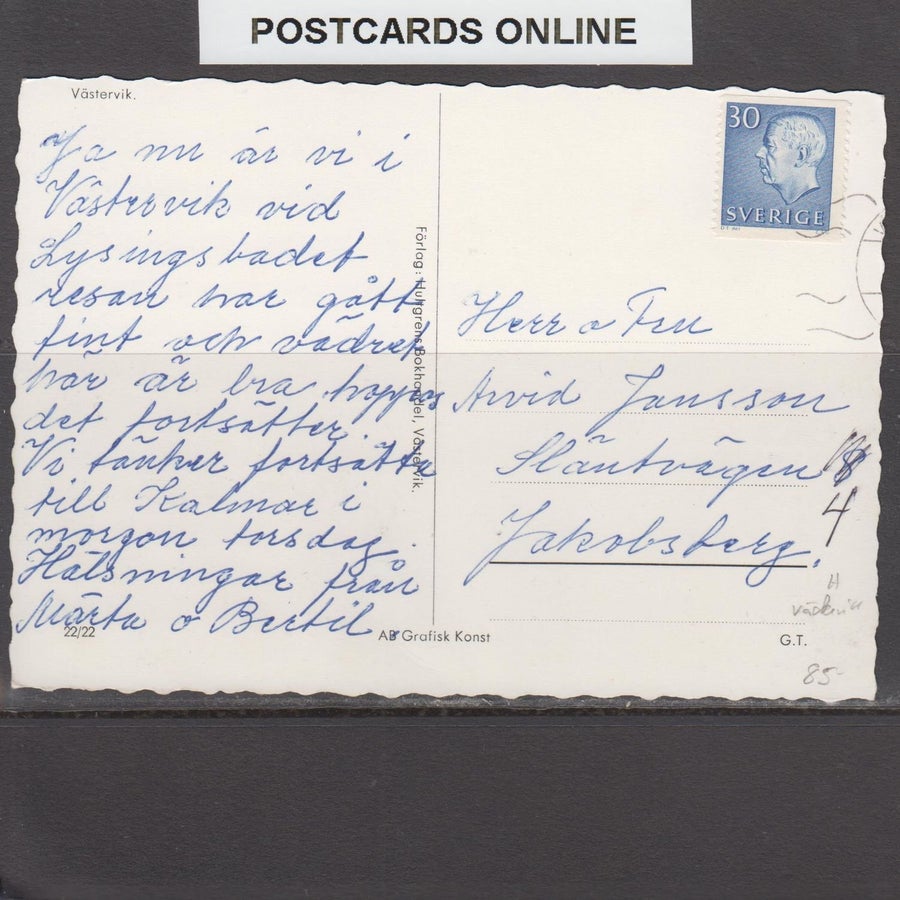 POSTCARDS ONLINE
Västervik.
Ja nu är vi i
Västervik vid
Lysingsbadet
resan har gått
fint och vädret
här är bra hoppas
det fortsätter.
Vi tänker fortsätta
till Kalmar i
morgon torsdag.
Hälsningar från
Märta o Bertil
22/22
Förlag: Hultgrens Bokhandel, Västervik.
AB Grafisk Konst
30
SVERIGE
Herr o Fru
Arvid Jansson
Släntvägen
4
Jakobsberg.
H
G.T.
85-